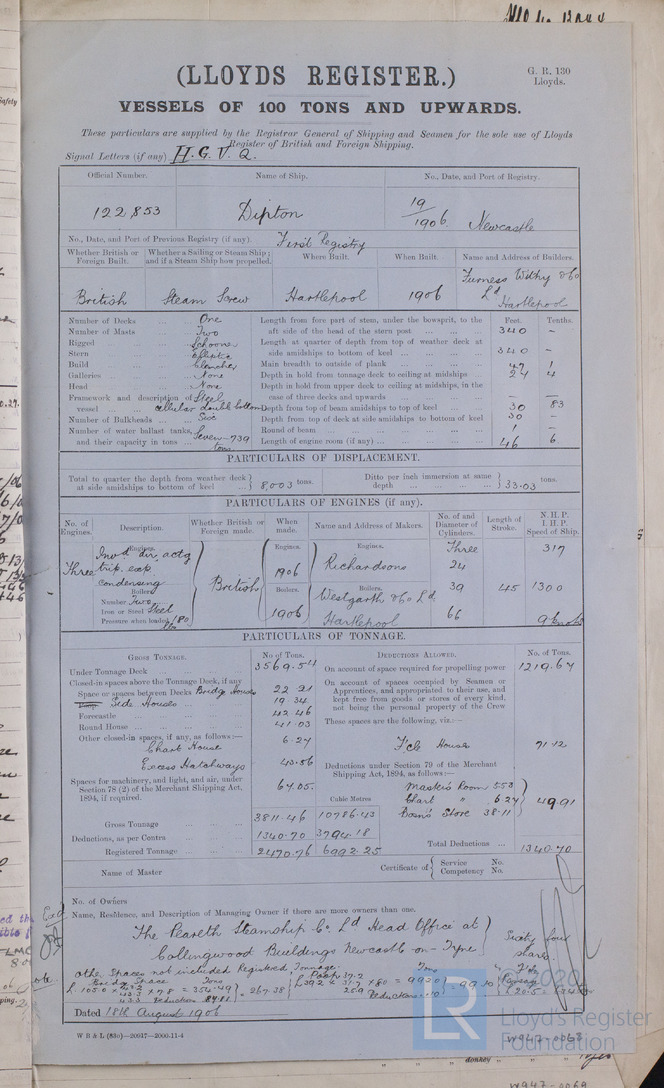 (LLOYDS REGISTER.)
G. R. 130
Lloyds.
VESSELS OF 100 TONS AND UPWARDS.
These particulars are supplied by the Registrar General of Shipping and Seamen for the sole use of Lloyds
Register of British and Foreign Shipping.
Signal Letters (if any) H. G. V. Q.
Official Number. Name of Ship. No., Date, and Port of Registry.
122,853 Dipton 19/1906. Newcastle
No., Date, and Port of Previous Registry (if any). First Registry
Whether British or Foreign Built. Whether a Sailing or Steam Ship; and if a Steam Ship how propelled. Where Built. When Built. Name and Address of Builders.
British Steam Screw Hartlepool 1906 Furness Withy & Co Ld Hartlepool
Number of Decks One
Number of Masts Two
Rigged Schooner
Stern Elliptic
Build Clencher
Galleries None
Head None
Framework and description of vessel Steel cellular double bottom
Number of Bulkheads Six
Number of water ballast tanks, and their capacity in tons Seven - 739 tons
Feet. Tenths.
Length from fore part of stem, under the bowsprit, to the aft side of the head of the stern post 340 -
Length at quarter of depth from top of weather deck at side amidships to bottom of keel 340 -
Main breadth to outside of plank 47 1
Depth in hold from tonnage deck to ceiling at midships 24 4
Depth in hold from upper deck to ceiling at midships, in the case of three decks and upwards - -
Depth from top of beam amidships to top of keel 30 83
Depth from top of deck at side amidships to bottom of keel 30 -
Round of beam 1 -
Length of engine room (if any) 46 6
PARTICULARS OF DISPLACEMENT.
Total to quarter the depth from weather deck at side amidships to bottom of keel 8,003 tons.
Ditto per inch immersion at same depth 33.03 tons.
PARTICULARS OF ENGINES (if any).
No. of Engines. Description. Whether British or Foreign made. When made. Name and Address of Makers. No. of and Diameter of Cylinders. Length of Stroke. N.H.P. I.H.P. Speed of Ship.
Engines. Engines. Engines.
Three Invd dir. actg trip. exp. condensing British 1906 Richardsons Three 24 317
Boilers. Boilers. Boilers.
Number Two 1906 Westgarth & Co Ld 39 45 1300
Iron or Steel Steel
Pressure when loaded 180 lbs Hartlepool 66 9 knots
PARTICULARS OF TONNAGE.
GROSS TONNAGE. No. of Tons.
Under Tonnage Deck 3569.54
Closed-in spaces above the Tonnage Deck, if any
Space or spaces between Decks Bridge House 22.21
Side Houses 19.34
Forecastle 42.46
Round House 41.03
Other closed-in spaces, if any, as follows:—
Chart House 6.27
Excess Hatchways 43.56
Spaces for machinery, and light, and air, under Section 78 (2) of the Merchant Shipping Act, 1894, if required. 67.05
Cubic Metres
Gross Tonnage 3811.46 10786.43
Deductions, as per Contra 1340.70 3794.18
Registered Tonnage 2470.76 6992.25
DEDUCTIONS ALLOWED. No. of Tons.
On account of space required for propelling power 1219.67
On account of spaces occupied by Seamen or Apprentices, and appropriated to their use, and kept free from goods or stores of every kind, not being the personal property of the Crew
These spaces are the following, viz.:—
Fcle Houses 71.12
Deductions under Section 79 of the Merchant Shipping Act, 1894, as follows:—
Masters Room 5.53
Chart " 6.27
Bosn's Store 38.11
49.91
Total Deductions 1340.70
Name of Master
Certificate of Service No. Competency No.
No. of Owners
Name, Residence, and Description of Managing Owner if there are more owners than one.
The Peareth Steamship Co. Ld Head Office at
Collingwood Buildings Newcastle-on-Tyne
Sixty four shares
Other Spaces not included Registered Tonnage.
Dated 18th August 1906
W B & L (830)—20917—2000-11-4
© 2020
LR
Lloyd's Register
Foundation
W947-0068
donkey
W947-0069